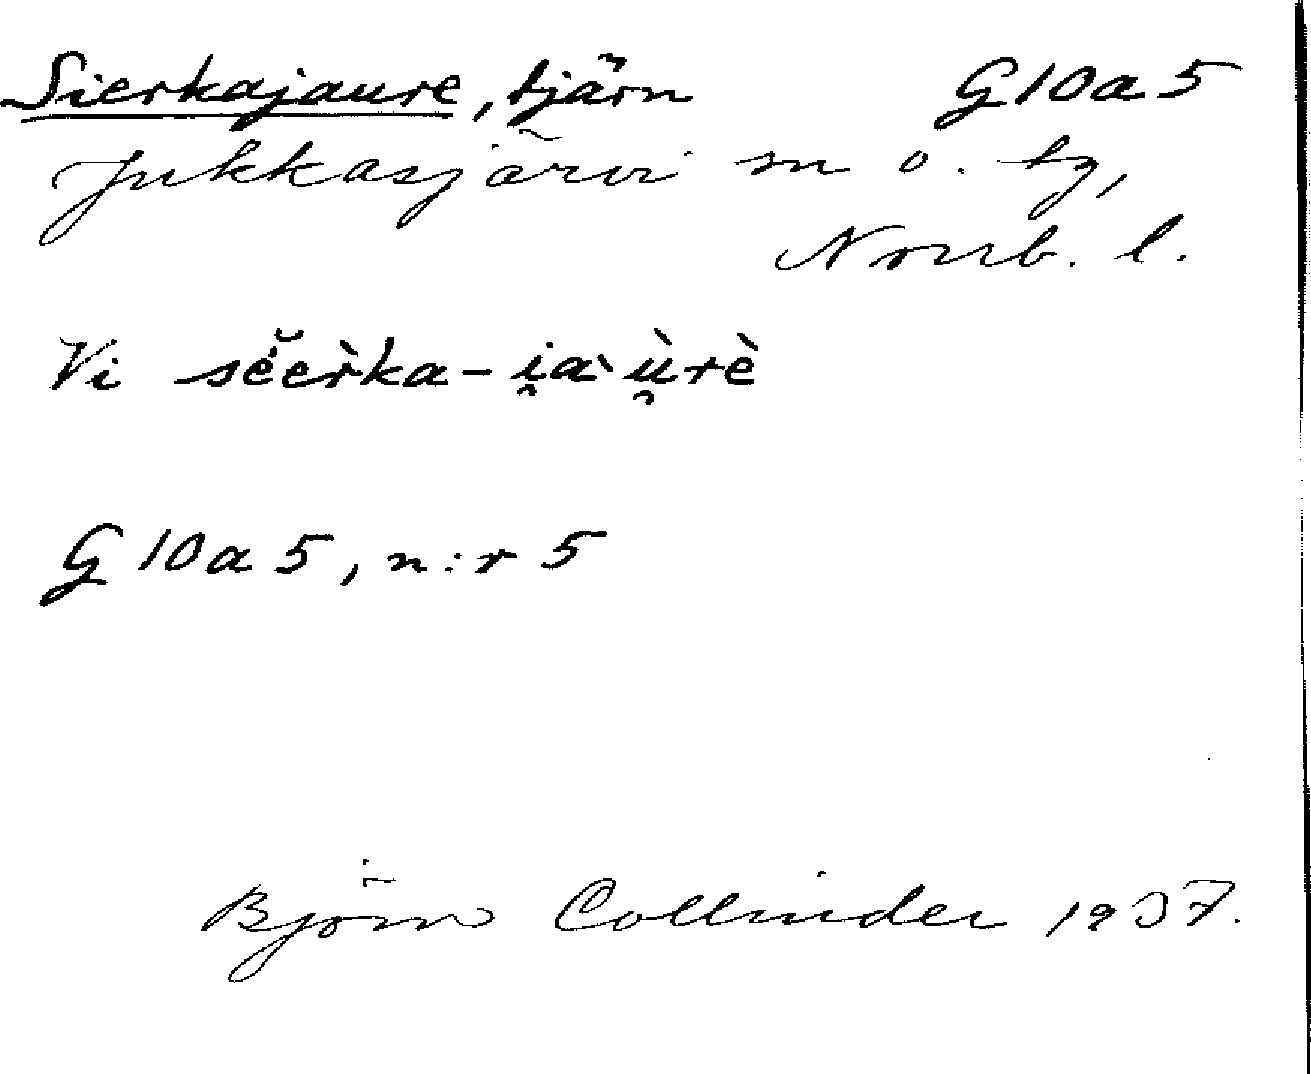 Sierkajaure, tjärn G10a5
Jukkasjärvi sn o. tg,
Norrb. l.
Vi sĕ̇er̀ka-i̯aˋù̯rè
G 10a 5, n:r 5
Björn Collinder 1937.